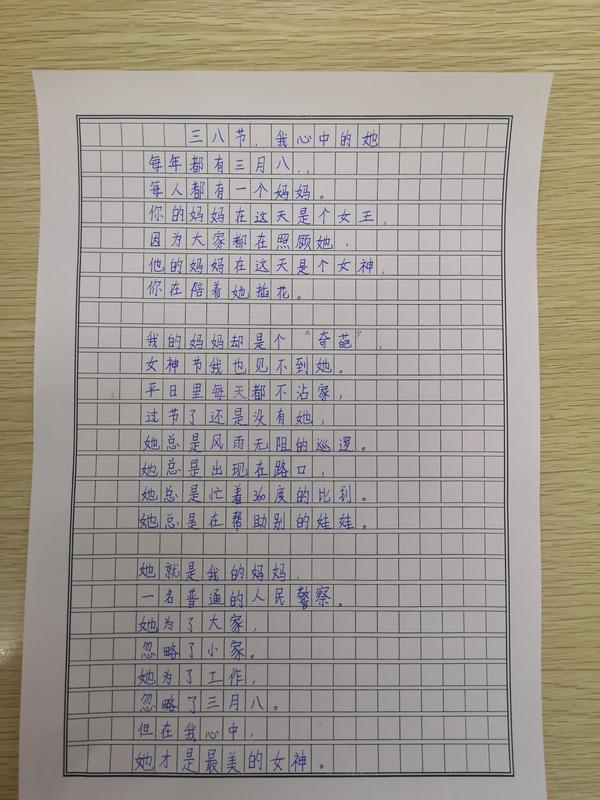 三八节，我心中的她
每年都有三月八，
每人都有一个妈妈。
你的妈妈在这天是个女王，
因为大家都在照顾她，
他的妈妈在这天是个女神，
你在陪着她插花。
我的妈妈却是个“奇葩”，
女神节我也见不到她。
平日里每天都不沾家，
过节了还是没有她，
她总是风雨无阻的巡逻。
她总是出现在路口，
她总是忙着360度的比划。
她总是在帮助别的娃娃。
她就是我的妈妈，
一名普通的人民警察。
她为了大家，
忽略了小家。
她为了工作，
忽略了三月八。
但在我心中，
她才是最美的女神。